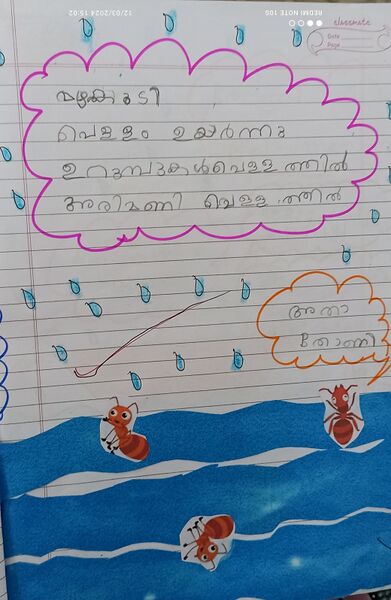 REDMI NOTE 10S
12/03/2024 15:02
classmate
Date
Page
മഴ കൂടി
വെള്ളം ഉയർന്നു
ഉറുമ്പുകൾ വെള്ളത്തിൽ
അരിമണി വെള്ളത്തിൽ
അതാ
തോണി